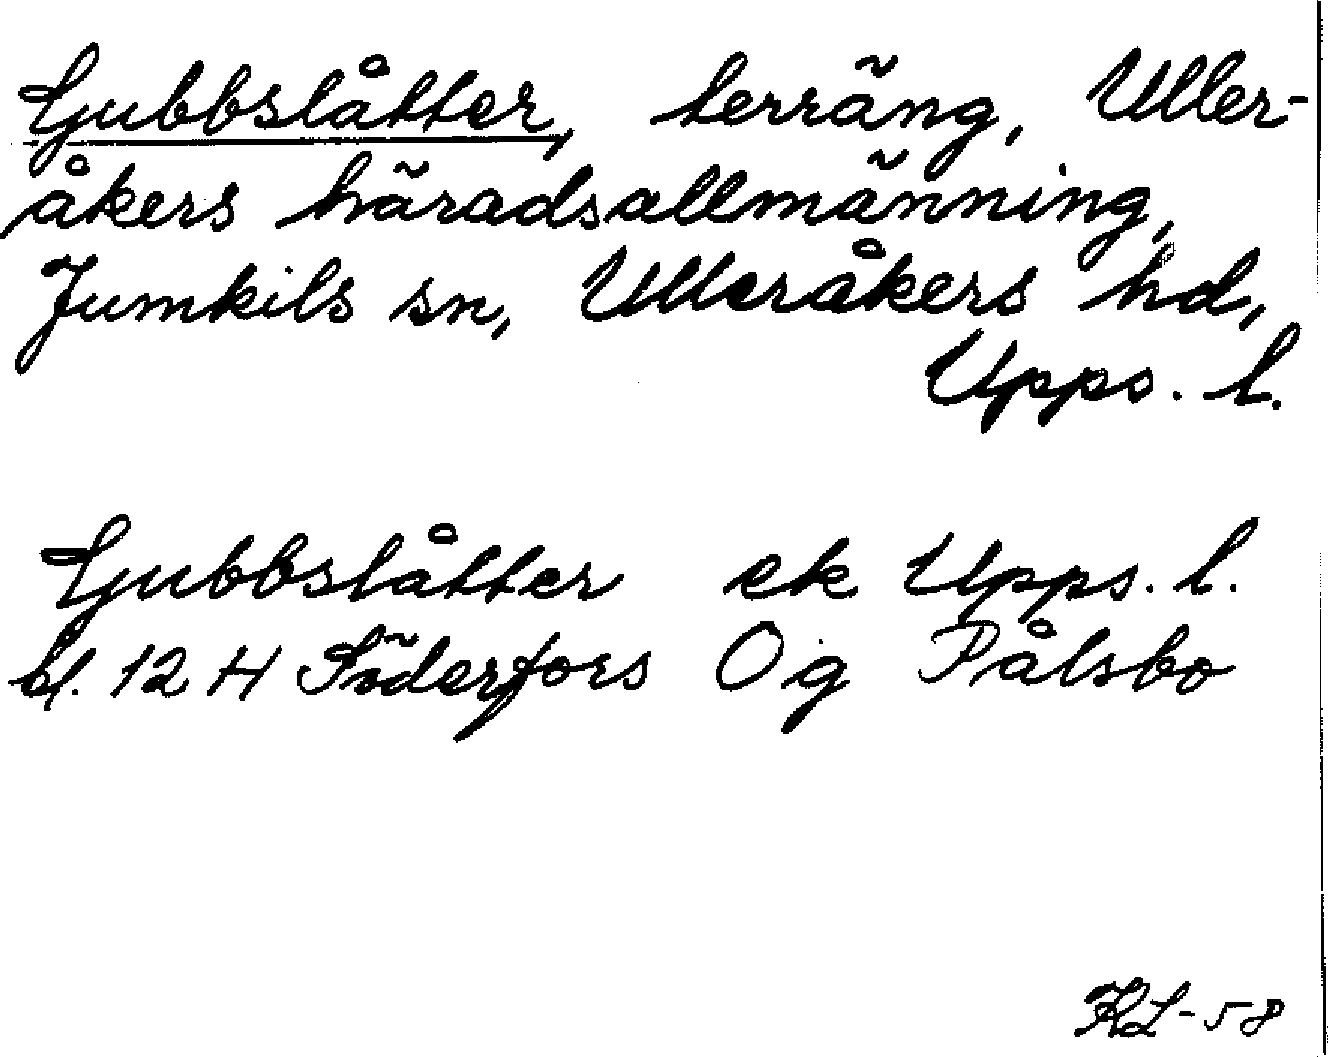 Gubbslåtter, terräng, Uller-
åkers häradsallmänning,
Jumkils sn, Ulleråkers hd,
Upps. l.
Gubbslåtter ek Upps. l.
bl. 12 H Söderfors Og Pålsbo
KL-58